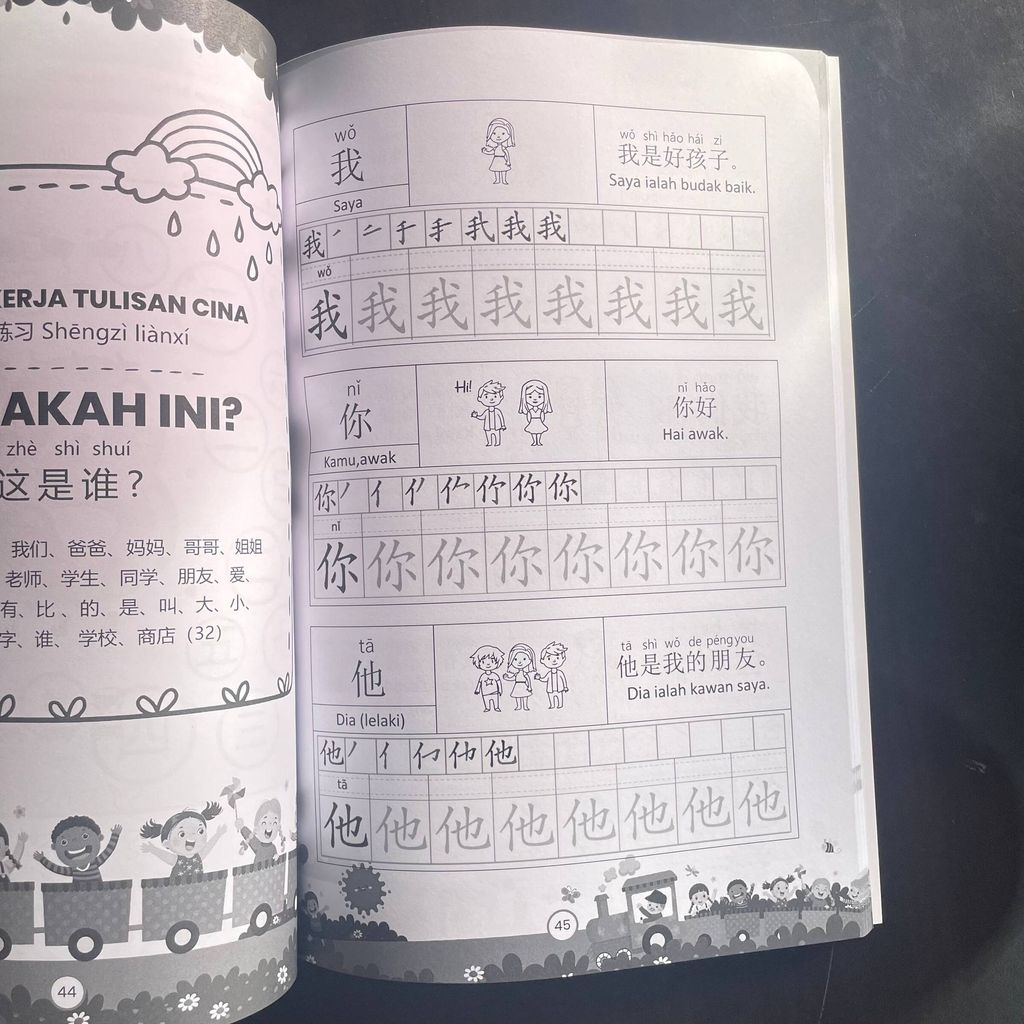 KERJA TULISAN CINA
练习 Shēngzì liànxí
AKAH INI?
zhè shì shuí
这是谁？
我们、爸爸、妈妈、哥哥、姐姐
老师、学生、同学、朋友、爱、
有、比、的、是、叫、大、小、
字、谁、学校、商店（32）
44
wǒ
我
Saya
wǒ shì hǎo hái zi
我是好孩子。
Saya ialah budak baik.
我 我
wǒ
我 我 我 我 我 我 我 我
nǐ
你
Kamu,awak
Hi!
nǐ hǎo
你好
Hai awak.
你 你
nǐ
你 你 你 你 你 你 你 你
tā
他
Dia (lelaki)
tā shì wǒ de péngyou
他是我的朋友。
Dia ialah kawan saya.
他 他
tā
他 他 他 他 他 他 他 他
45